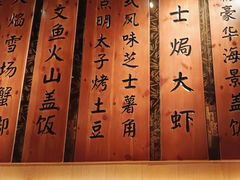 豪华海景盖饭
士焗大虾
式风味芝士薯角
明太子烤土豆
文鱼火山盖饭
焰雪场蟹即